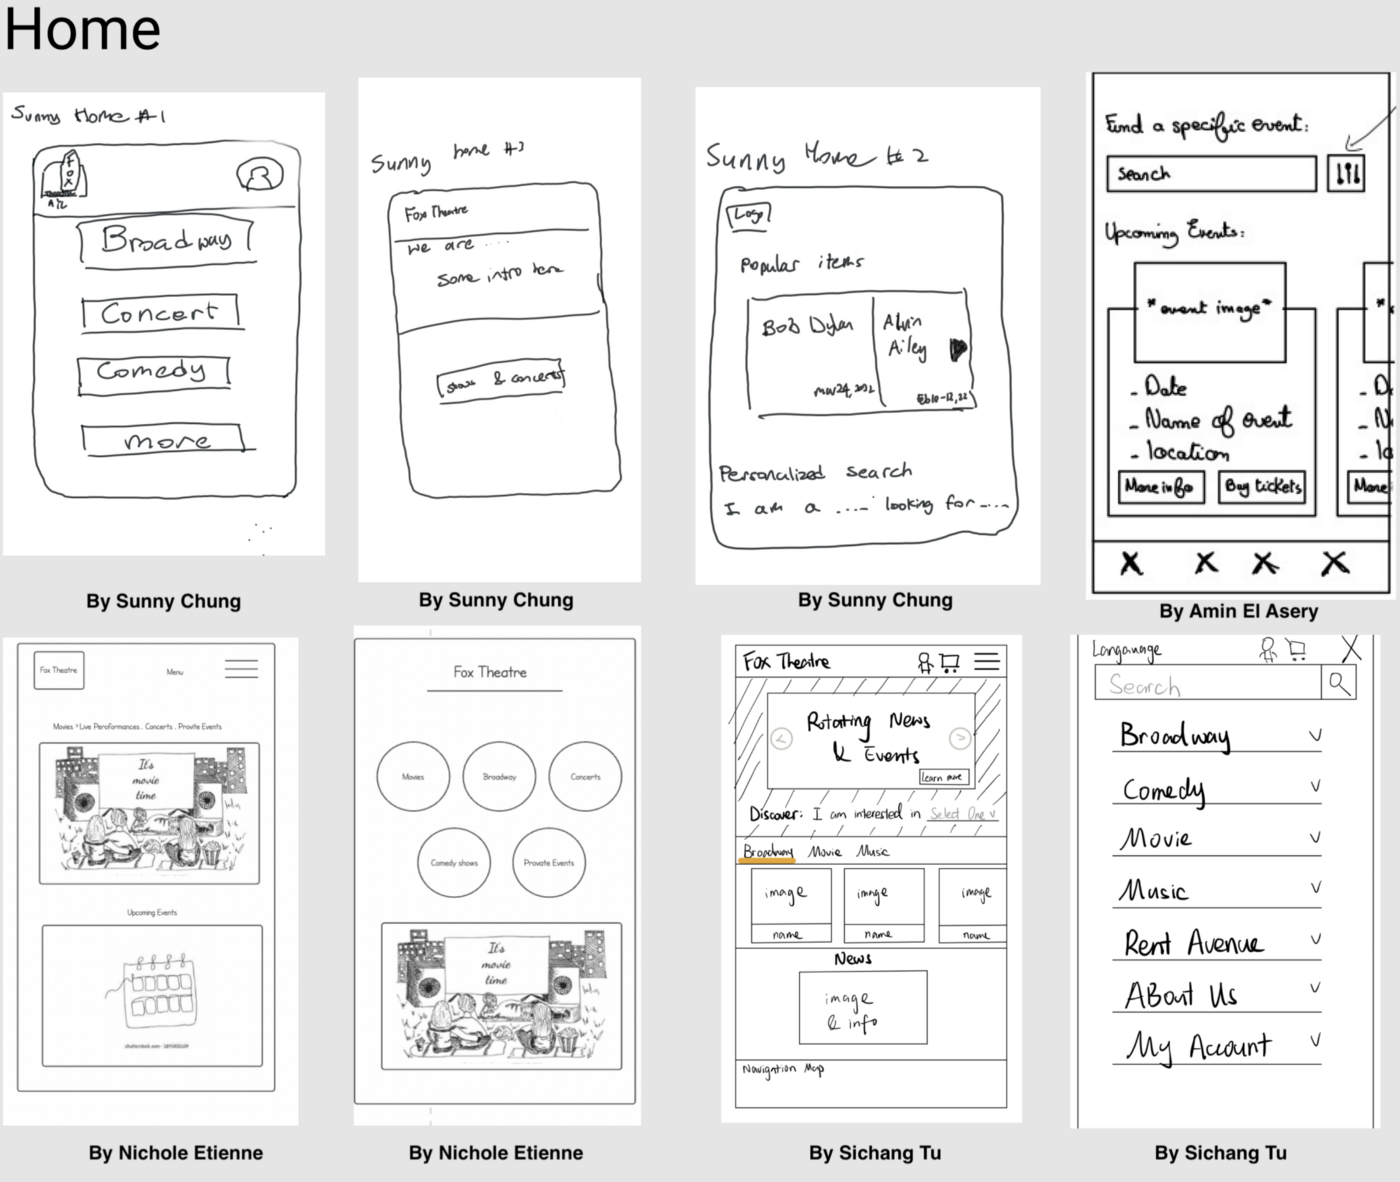 Home
Sunny Home #1
FOX
Broadway
Concert
Comedy
more
By Sunny Chung
Sunny home #3
Fox Theatre
we are ....
Some intro here
shows & concerts
By Sunny Chung
Sunny Home #2
Logo
Popular items
Bob Dylan
Alvin
Ailey
mar 24, 2022
Feb 10-12, 22
Personalized search
I am a .... looking for ....
By Sunny Chung
Find a specific event:
Search
Upcoming Events:
*event image*
- Date
- Name of event
- location
More info
Buy tickets
*
- D
- N
- lo
More
X X X X
By Amin El Asery
Fox Theatre
Menu
Movies > Live Peroformances . Concerts . Provite Events
It's
movie
time
Upcoming Events
By Nichole Etienne
Fox Theatre
Movies
Broadway
Concerts
Comedy shows
Provate Events
It's
movie
time
By Nichole Etienne
Fox Theatre
Rotating News
& Events
< >
Learn more
Discover: I am interested in Select One v
Broadway Movie Music
image image image
name name name
News
image
& info
Navigation Map
By Sichang Tu
Langauage X
Search
Broadway
Comedy
Movie
Music
Rent Avenue
ABout Us
My Account
By Sichang Tu